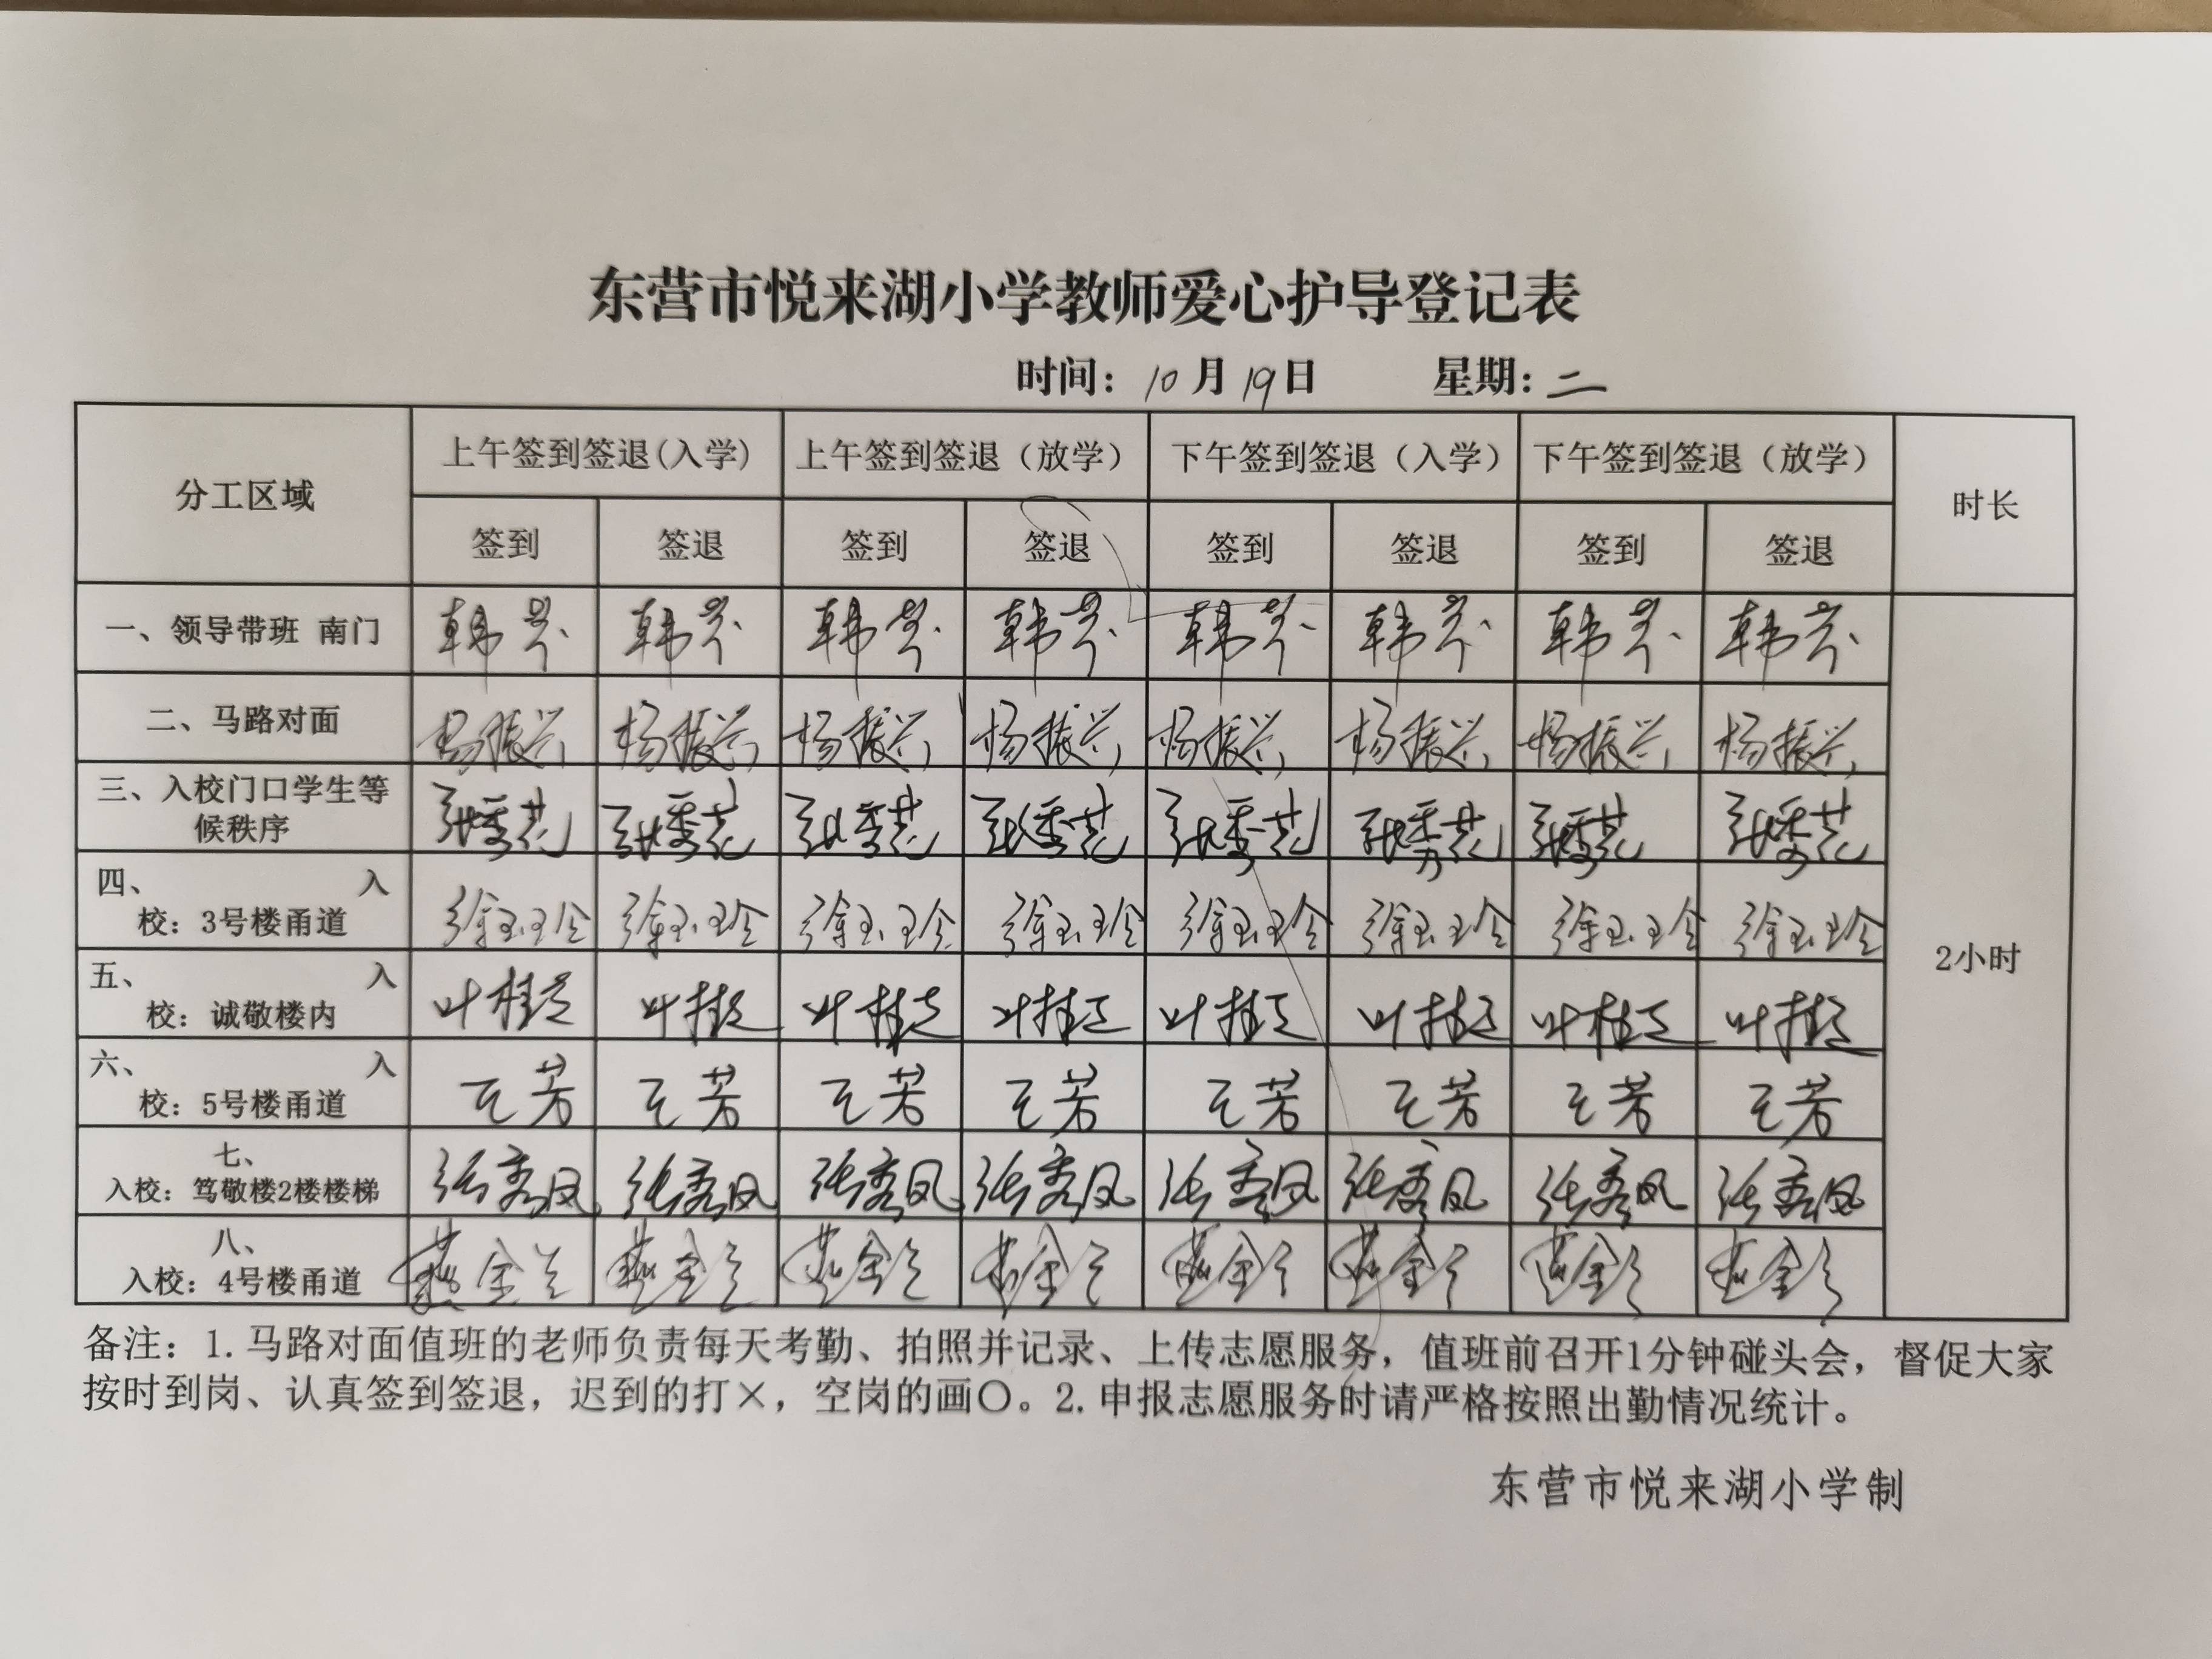 东营市悦来湖小学教师爱心护导登记表
时间：10月19日 星期：二
分工区域 上午签到签退(入学) 上午签到签退（放学） 下午签到签退（入学） 下午签到签退（放学） 时长
签到 签退 签到 签退 签到 签退 签到 签退
一、领导带班 南门 韩 韩 韩 韩 韩 韩 韩 韩
二、马路对面 杨振兴 杨振兴 杨振兴 杨振兴 杨振兴 杨振兴 杨振兴 杨振兴
三、入校门口学生等
候秩序 张秀花 张秀花 张秀花 张秀花 张秀花 张秀花 张秀花 张秀花
四、 入
校：3号楼甬道 徐玉玲 徐玉玲 徐玉玲 徐玉玲 徐玉玲 徐玉玲 徐玉玲 徐玉玲
2小时
五、 入
校：诚敬楼内 叶桂 叶桂 叶桂 叶桂 叶桂 叶桂 叶桂 叶桂
六、 入
校：5号楼甬道 王芳 王芳 王芳 王芳 王芳 王芳 王芳 王芳
七、
入校：笃敬楼2楼楼梯 张秀凤 张秀凤 张秀凤 张秀凤 张秀凤 张秀凤 张秀凤 张秀凤
八、
入校：4号楼甬道
备注：1.马路对面值班的老师负责每天考勤、拍照并记录、上传志愿服务，值班前召开1分钟碰头会，督促大家
按时到岗、认真签到签退，迟到的打×，空岗的画〇。2.申报志愿服务时请严格按照出勤情况统计。
东营市悦来湖小学制